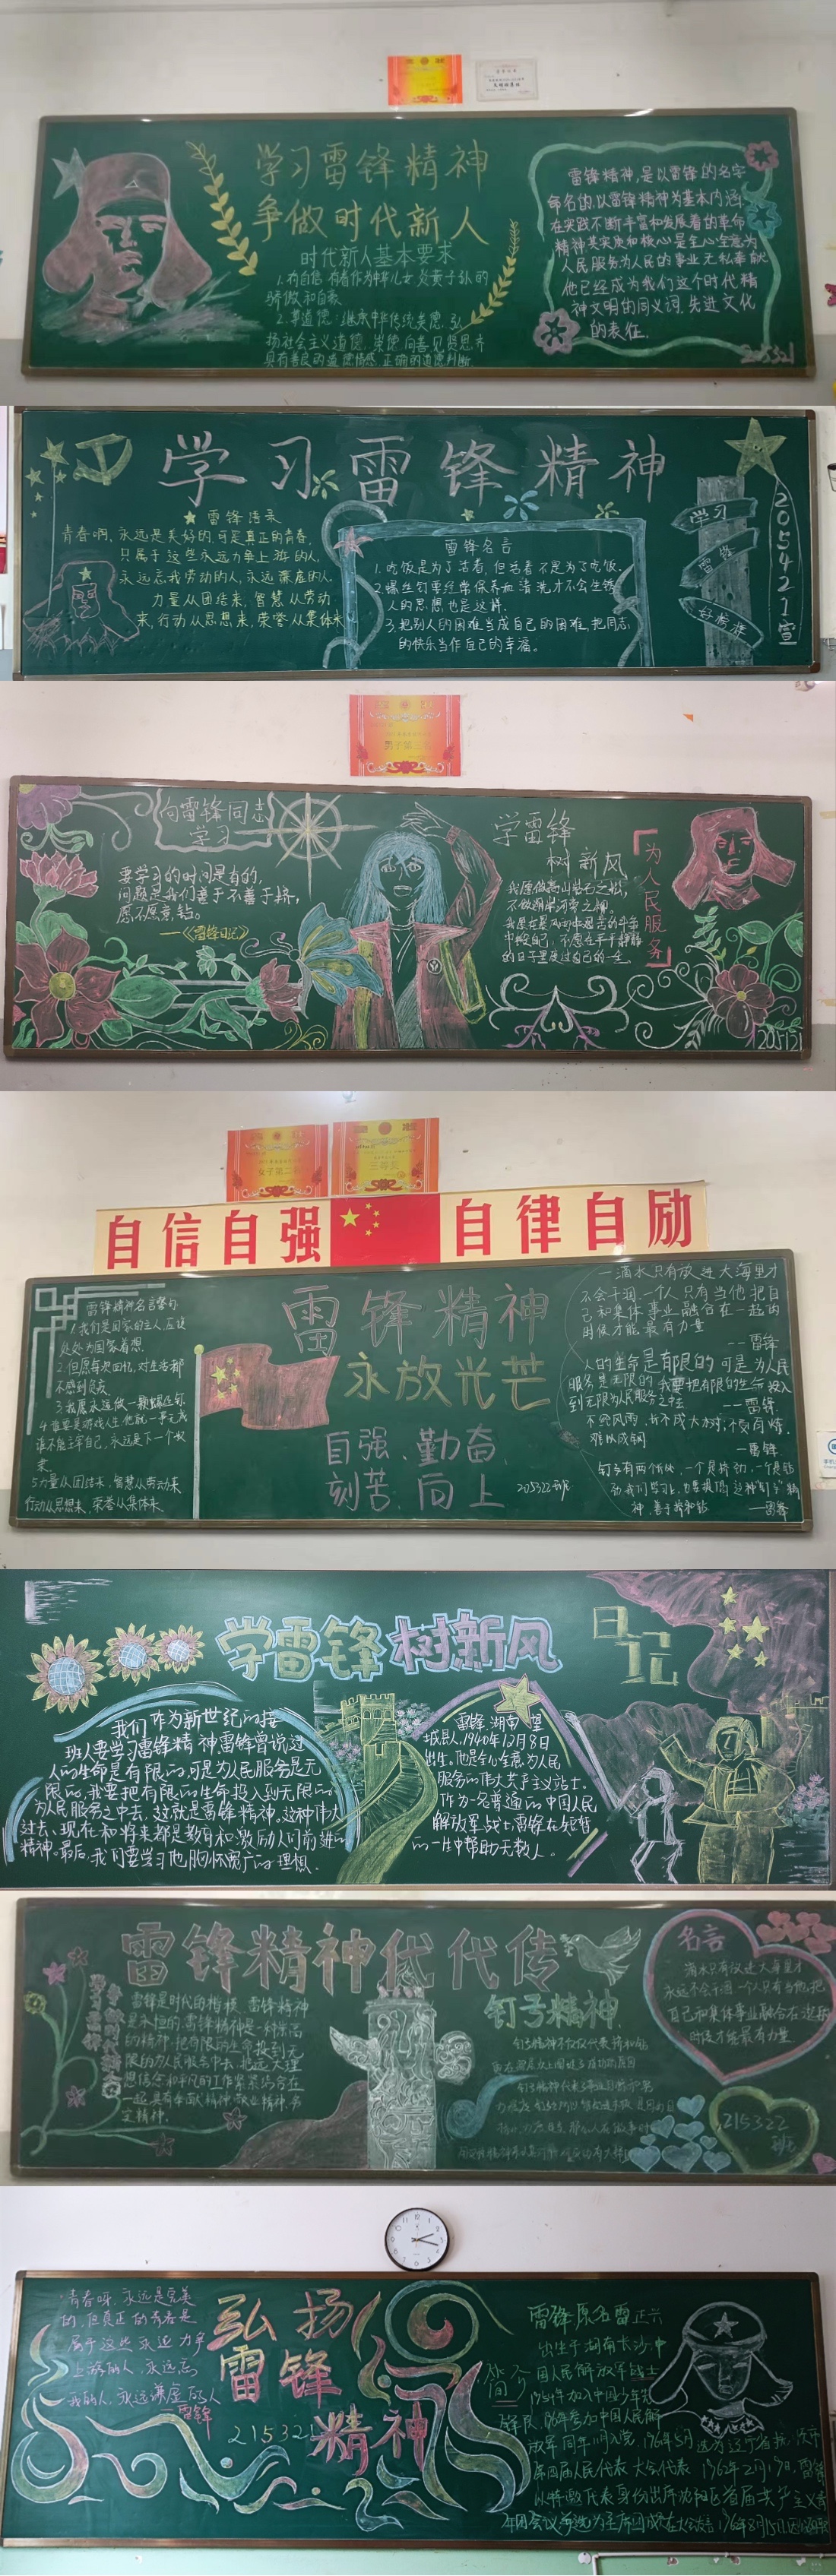 学习雷锋精神
争做时代新人
时代新人基本要求
1.有自信:有着作为中华儿女炎黄子孙的
骄傲和自豪
2.尊道德:继承中华传统美德,弘
扬社会主义道德,崇德向善见贤思齐
具有善良的道德情感,正确的道德判断.
雷锋精神,是以雷锋的名字
命名的,以雷锋精神为基本内涵,
在实践不断丰富和发展着的革命
精神其实质和核心是全心全意为
人民服务为人民的事业无私奉献
他已经成为我们这个时代精
神文明的同义词,先进文化
的表征.
205321
学习雷锋精神
雷锋语录
青春啊,永远是美好的,可是真正的青春,
只属于这些永远力争上游的人,
永远忘我劳动的人,永远谦虚的人.
力量从团结来,智慧从劳动
来,行动从思想来,荣誉从集体来
雷锋名言
1.吃饭是为了活着,但活着不是为了吃饭.
2.螺丝钉要经常保养和清洗才不会生锈
人的思想也是这样.
3.把别人的困难当成自己的困难,把同志
的快乐当作自己的幸福。
学习
雷锋
好榜样
205421宣
男子第三名
向雷锋同志
学习
要学习的时间是有的,
问题是我们善于不善于挤,
愿不愿意钻。
——《雷锋日记》
学雷锋
树新风
我愿做高山岩石之松,
不做湖岸河旁之柳。
我愿在暴风雨中艰苦的斗争
中锻炼自己,不愿在平平静静
的日子里度过自己的一生.
「为人民服务」
205121
女子第二名
三等奖
自信自强
自律自励
雷锋精神名言警句
1.我们是国家的主人,应该
处处为国家着想.
2.但愿每次回忆,对生活都
不感到负疚
3.我愿永远做一颗螺丝钉.
4.谁要是游戏人生,他就一事无成
谁不能主宰自己,永远是下一个奴
隶.
5.力量从团结来,智慧从劳动来
行动从思想来,荣誉从集体来.
雷锋精神
永放光芒
自强、勤奋、
刻苦、向上
205322班
一滴水只有放进大海里才
不会干涸,一个人只有当他把自
己和集体事业融合在一起的
时候才能最有力量
——雷锋
人的生命是有限的可是为人民
服务是无限的,我要把有限的生命投入
到无限为人民服务之中去
——雷锋.
不经风雨,长不成大树,不受百炼,
难以成钢
—雷锋.
钉子有两个长处,一个是挤劲,一个是钻
劲,我们学习上,也要提倡这种"钉子"精
神,善于挤和钻
——雷锋
学雷锋树新风
我们作为新世纪的接
班人要学习雷锋精神,雷锋曾说过
人的生命是有限的,可是为人民服务是无
限的,我要把有限的生命投入到无限的
为人民服务之中去,这就是雷锋精神。这种伟大
过去、现在和将来都是教育和激励人们前进的
精神。最后,我们要学习他胸怀宽广的理想.
雷锋,湖南望
城县人,1940年12月8日
出生。他是全心全意为人民
服务的伟大共产主义战士.
作为一名普通的中国人民
解放军战士雷锋在短暂
的一生中帮助无数人。
雷锋精神代代传
雷锋是时代的楷模,雷锋精神
是永恒的,雷锋精神是一种崇高
的精神,把有限的生命投到无
限的为人民服务中去,把远大理
想信念和平凡的工作紧紧结合在
一起,具有奉献精神,敬业精神,务
实精神.
钉子精神
名言
一滴水只有放进大海里才
永远不会干涸一个人只有当他把
自己和集体事业融合在一起的
时候才能最有力量
215322
班
青春呀,永远是完美
的,但真正的青春是
属于这些永远力争
上游的人,永远忘
我的人,永远谦虚的人
——雷锋
弘扬
雷锋
精神
215321
简介
雷锋原名雷正兴
出生于湖南长沙,中
国人民解放军战士
1954年加入中国少年先
锋队,1960年参加中国人民解
放军同年11月入党.1961年5月
第四届人民代表大会代表.1962年2月19日,雷锋
以特邀代表身份出席沈阳军区首届共产主义青